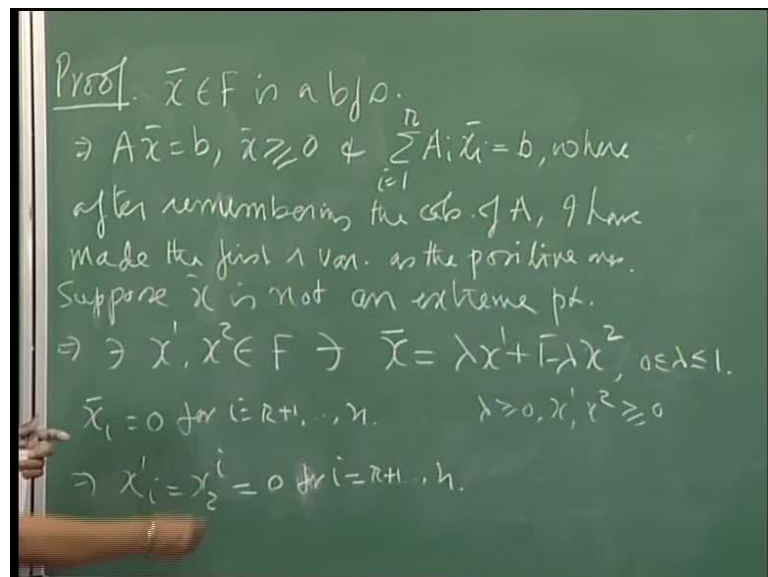 Proof. x̄ ∈ F is a bfs.
⇒ Ax̄ = b, x̄ ≥ 0 & ∑_{i=1}^{r} A_i x̄_i = b, where
after remembering the cols. of A, I have
made the first r var. as the positive ones.
Suppose x̄ is not an extreme pt.
⇒ ∃ x¹, x² ∈ F ∋ x̄ = λx¹ + 1-λ x², 0 ≤ λ ≤ 1.
x̄_i = 0 for i = r+1, .., n. λ ≥ 0, x¹, x² ≥ 0
⇒ x¹_i = x_2^i = 0 for i = r+1 .., n.